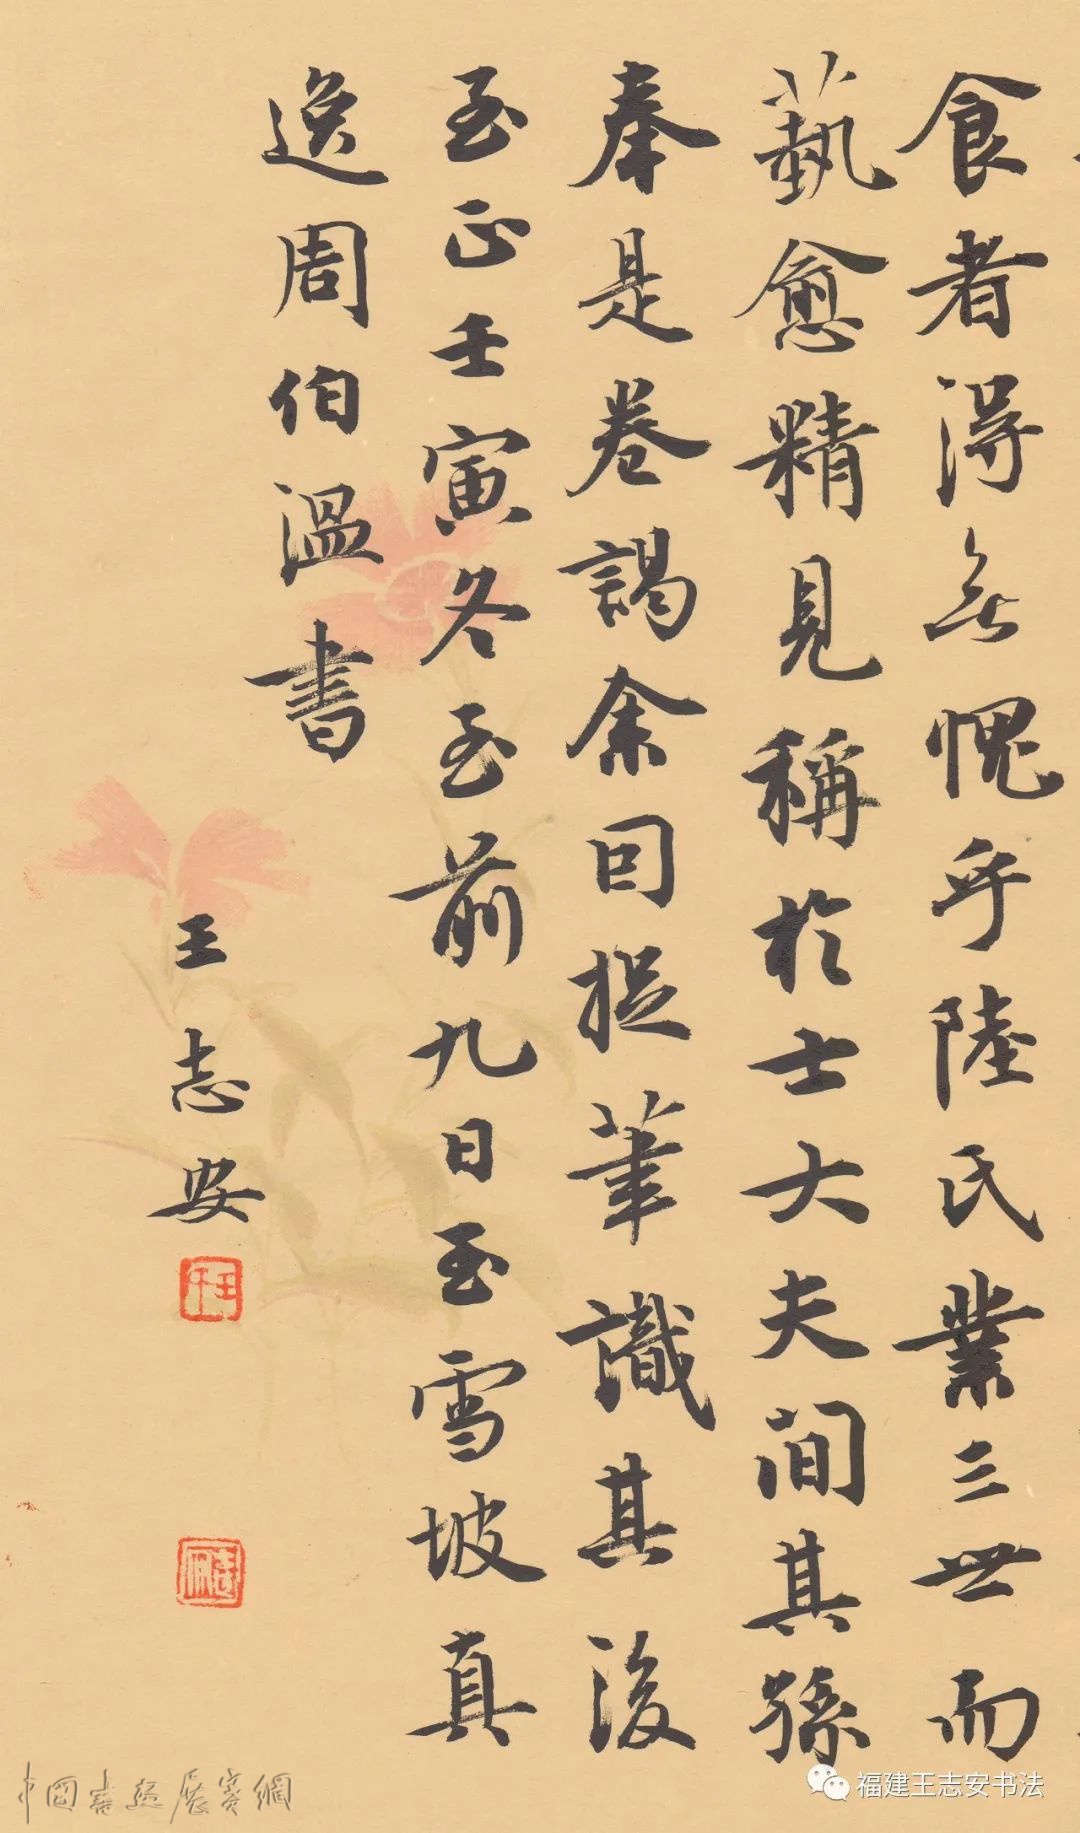 食者得無愧乎陸氏業三世而
藝愈精見稱於士大夫間其孫
奉是卷謁余因捉筆識其後
至正壬寅冬至前九日玉雪坡真
逸周伯溫書
王志安
中国书画展赛網
福建王志安书法